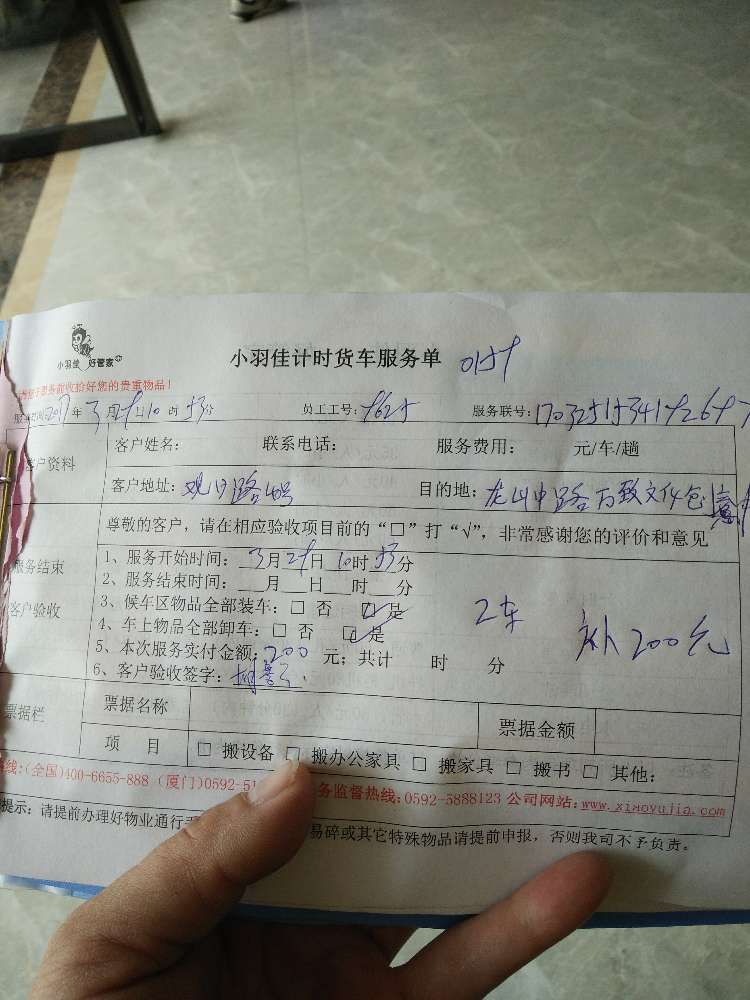 小羽佳 好管家
小羽佳计时货车服务单
服务前收拾好您的贵重物品！
2017年3月29日10时53分 员工工号： 服务联号：
客户资料 客户姓名： 联系电话： 服务费用： 元/车/趟
客户地址： 目的地：龙山中路万致文件包
尊敬的客户，请在相应验收项目前的“□”打“√”，非常感谢您的评价和意见
服务结束
客户验收
1、服务开始时间：3月29日10时53分
2、服务结束时间：__月__日__时__分
3、候车区物品全部装车：□ 否 ☑是
4、车上物品全部卸车：□ 否 ☑是
2车 补200元
5、本次服务实付金额：200元；共计 时 分
6、客户验收签字：
票据栏 票据名称 票据金额
项 目 □ 搬设备 □ 搬办公家具 □ 搬家具 □ 搬书 □ 其他：
线：(全国)400-6655-888 (厦门)0592-51 务监督热线：0592-5888123 公司网站：www.xiaoyujia.com
提示：请提前办理好物业通行 易碎或其它特殊物品请提前申报，否则我司不予负责。